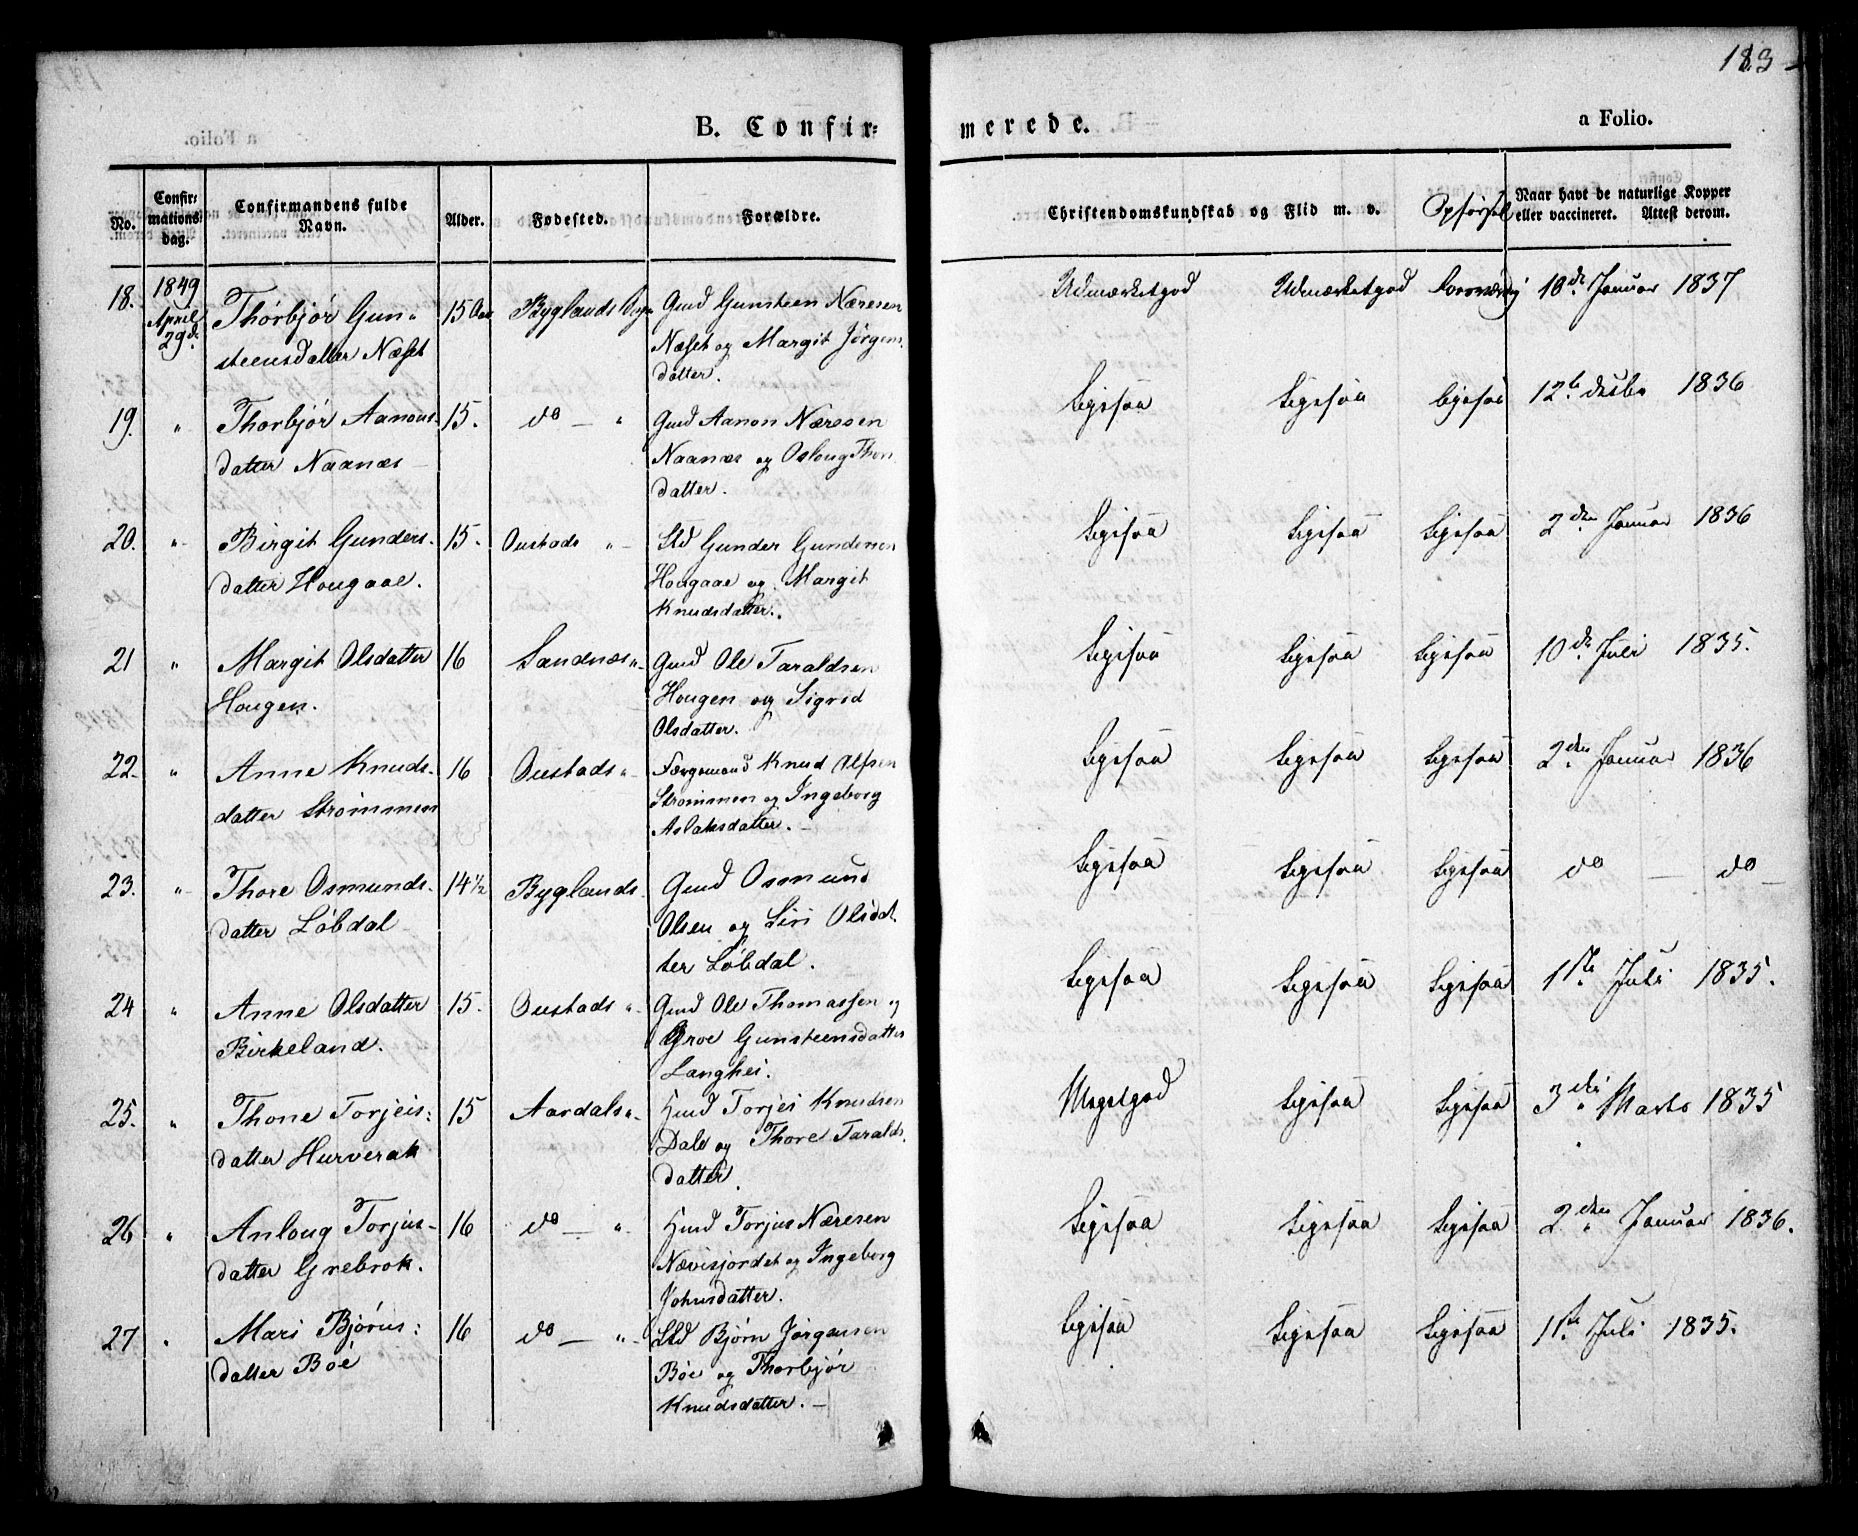 183
B. Confir=
merede.
a Folio.
No.
Confir=
mations
dag.
Confirmandens fulde
Navn.
Alder.
Fødested.
Forældre.
Christendomskundskab og Flid m. v.
Opførsel
Naar havt de naturlige Kopper
eller vaccineret. Attest derom.
18.
1849
April
29de
Thorbjør Gun-
steensdatter Næset
15 Aar
Byglands Sogn
Gmd Gunsteen Næresen
Næset og Margit Jørgens
datter.
Udmærketgod
Udmærketgod
10de Januar 1837
19.
"
Thorbjør Aanons-
datter Naanæs
15.
do — "
Gmd Aanon Næresen
Naanæs og Oslaug Thor
datter.
Ligesaa
Ligesaa
ligesaa
12te Desbr 1836
20.
"
Birgit Gunders-
datter Hougaae.
15.
Oustads "
Std Gunder Gundersen
Hougaae og Margit
Knudsdatter.
Ligesaa
Ligesaa
Ligesaa
2den Januar 1836
21
"
Margit Olsdatter
Hougen.
16
Sandnæs "
Gmd Ole Taraldsen
Hougen og Sigrid
Olsdatter.
Ligesaa
Ligesaa
Ligesaa
10de Juli 1835.
22.
"
Anne Knuds-
datter Strømmen
16
Oustads "
Færgemand Knud Alfsen
Strømmen og Ingeborg
Aslaksdatter.
Ligesaa
Ligesaa
Ligesaa
2den Januar 1836
23.
"
Thore Osmunds-
datter Løbdal
14½
Byglands
Gmd Osmund
Olsen og Siri Olsdat
ter Løbdal.
Ligesaa
Ligesaa
Ligesaa
do — do
24
"
Anne Olsdatter
Birkeland.
15.
Oustads "
Gmd Ole Thomassen og
Groe Gunsteensdatter
Langhei.
Ligesaa
Ligesaa
Ligesaa
1ste Juli 1835.
25.
"
Thone Torjeis:
datter Hurverak
15
Aardals "
Hmd Torjei Knudsen
Dale og Thore Taralds
datter.
Megetgod
Ligesaa
Ligesaa
3die Marts 1835
26
"
Anloug Torjus-
datter Grebrok.
16
do — "
Hmd Torjus Næresen
Nævisjordet og Ingeborg
Johnsdatter.
Ligesaa
Ligesaa
Ligesaa
2den Januar 1836.
27
"
Mari Bjørns:
datter Bøe
16
do — "
Std Bjørn Jørgensen
Bøe og Thorbjør
Knudsdatter.
Ligesaa
Ligesaa
Ligesaa
1ste Juli 1835.